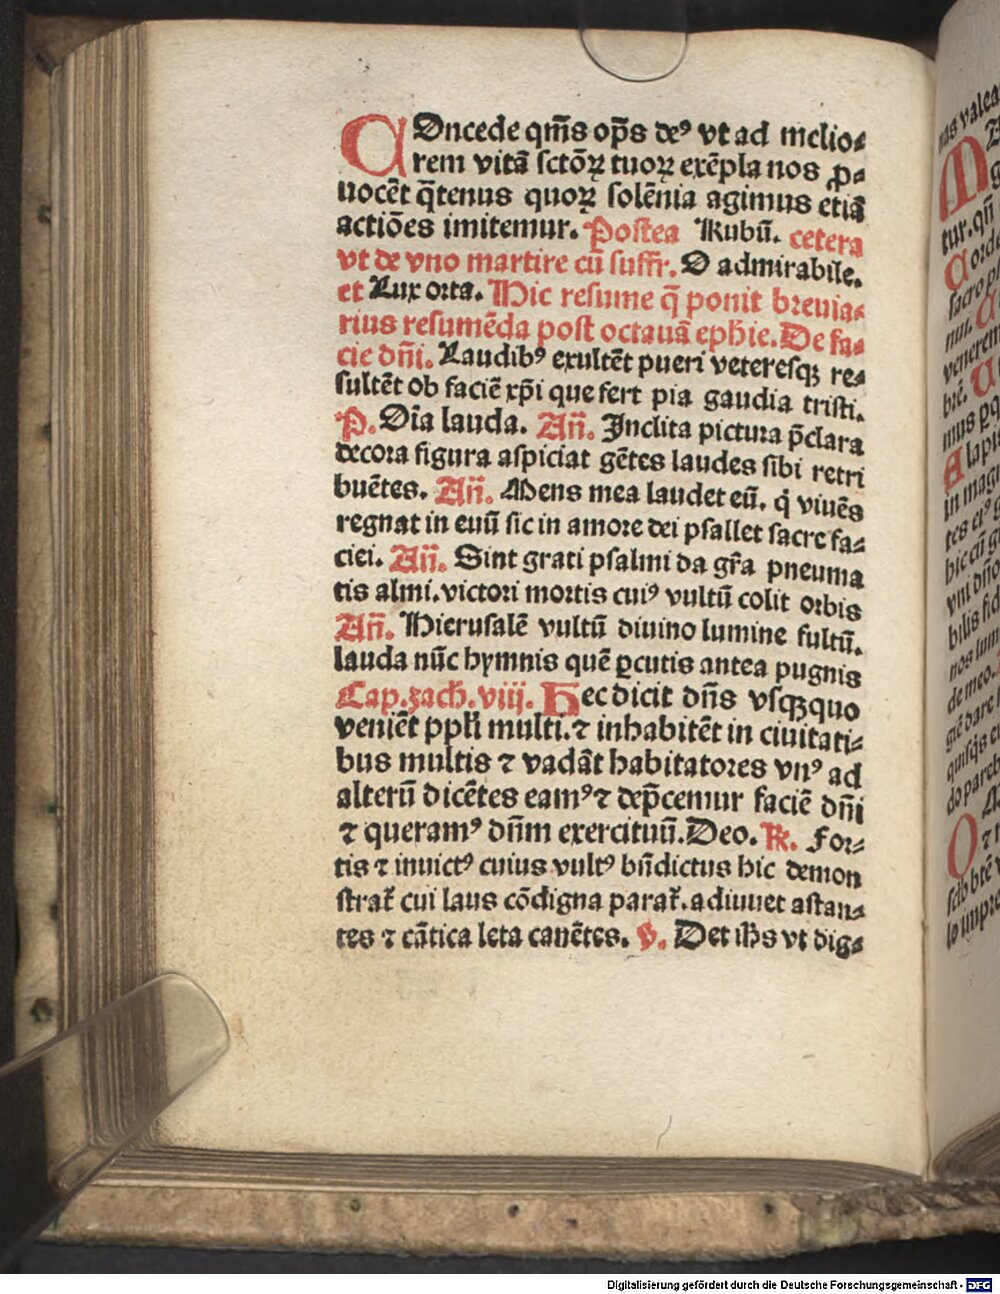 COncede qm̄s op̄s deꝰ vt ad melio⸗
rem vitā sctōꝝ tuoꝝ exēpla nos ꝓ⸗
uocēt q̄tenus quoꝝ solēnia agimus etiā
actiōes imitemur. Postea Rubū. cetera
vt de vno martire cū suffr̄. O admirabile.
et Lux orta. Hic resume q̄ ponit breuia⸗
rius resumēda post octauā ephie. De fa⸗
cie dn̄i. Laudibꝰ exultēt pueri veteresqꝫ re⸗
sultēt ob faciē xp̄i que fert pia gaudia tristi.
P. Oīa lauda. An̄. Inclita pictura p̄clara
decora figura aspiciat gētes laudes sibi retri
buētes. An̄. Mens mea laudet eū. q̇ viuēs
regnat in euū sic in amore dei psallet sacre fa⸗
ciei. An̄. Sint grati psalmi da gr̄a pneuma
tis almi. victori mortis cuiꝰ vultū colit orbis
An̄. Hierusalē vultū diuino lumine fultū.
lauda nūc hymnis quē ꝑcutis antea pugnis
Cap. zach. viij. Hec dicit dn̄s vsqꝫquo
veniēt ppl̄i multi. ⁊ inhabitēt in ciuitati⸗
bus multis ⁊ vadāt habitatores vnꝰ ad
alterū dicētes eamꝰ ⁊ dep̄cemur faciē dn̄i
⁊ queramꝰ dn̄m exercituū. Deo. R̄. For⸗
tis ⁊ inuictꝰ cuius vultꝰ bn̄dictus hic demon
strat̄ cui laus cōdigna parat̄. adiuuet astan⸗
tes ⁊ cātica leta canētes. V. Det ih̄s vt dig⸗
Digitalisierung gefördert durch die Deutsche Forschungsgemeinschaft - DFG